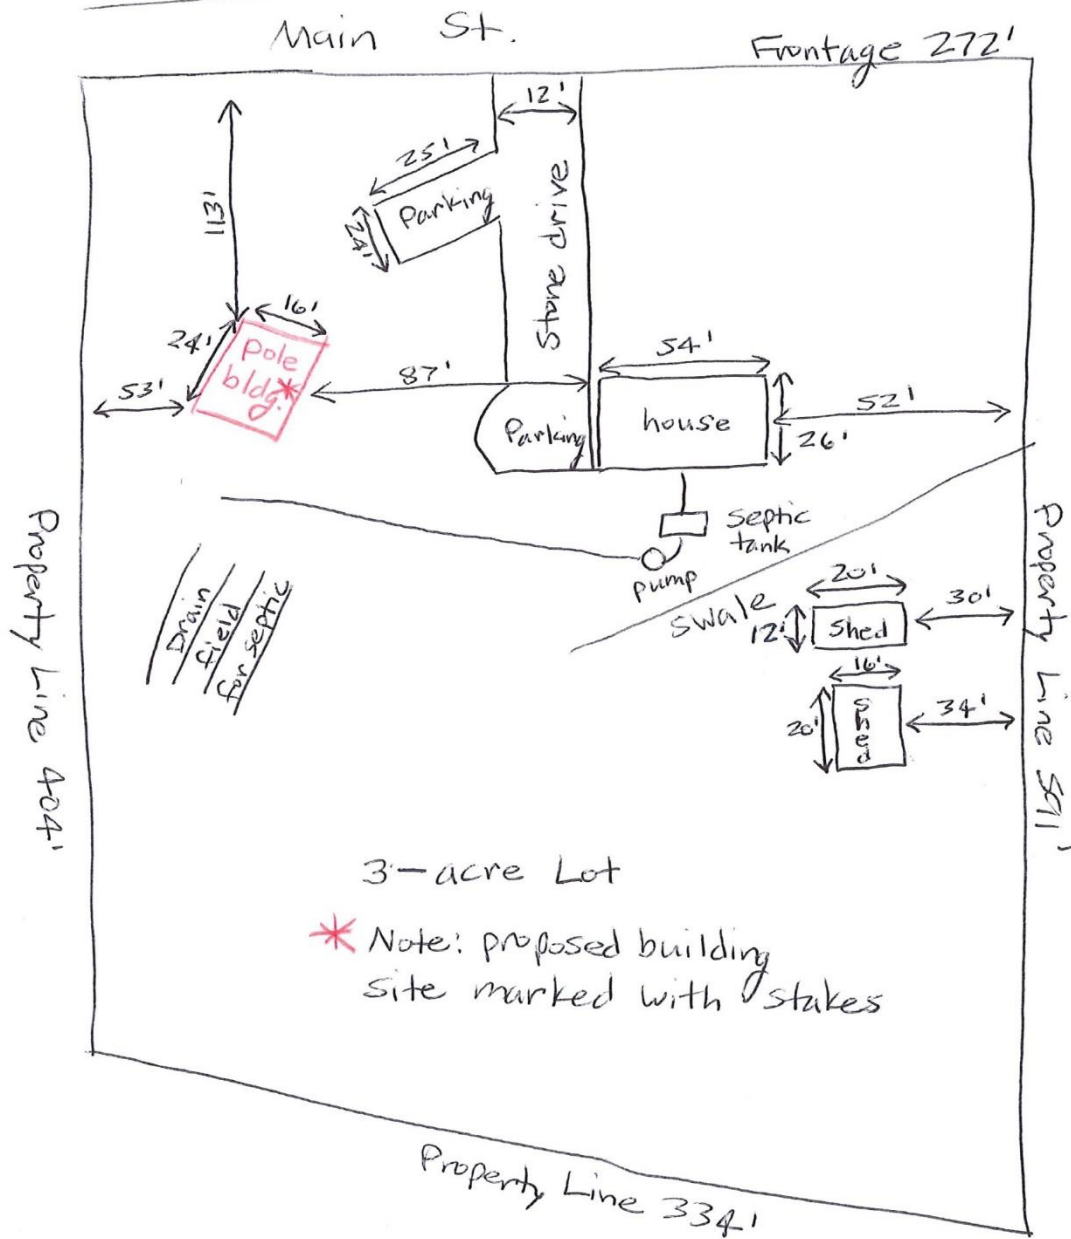 Main St.
Frontage 272'
12'
25'
Parking
24'
Stone drive
131'
16'
24'
pole
bldg.*
53'
87'
54'
house
52'
26'
Parking
septic
tank
pump
swale
20'
12'
Shed
30'
16'
20'
Shed
34'
Drain
field
for septic
Property Line 404'
Property Line 591'
3-acre Lot
* Note: proposed building
site marked with stakes
Property Line 334'